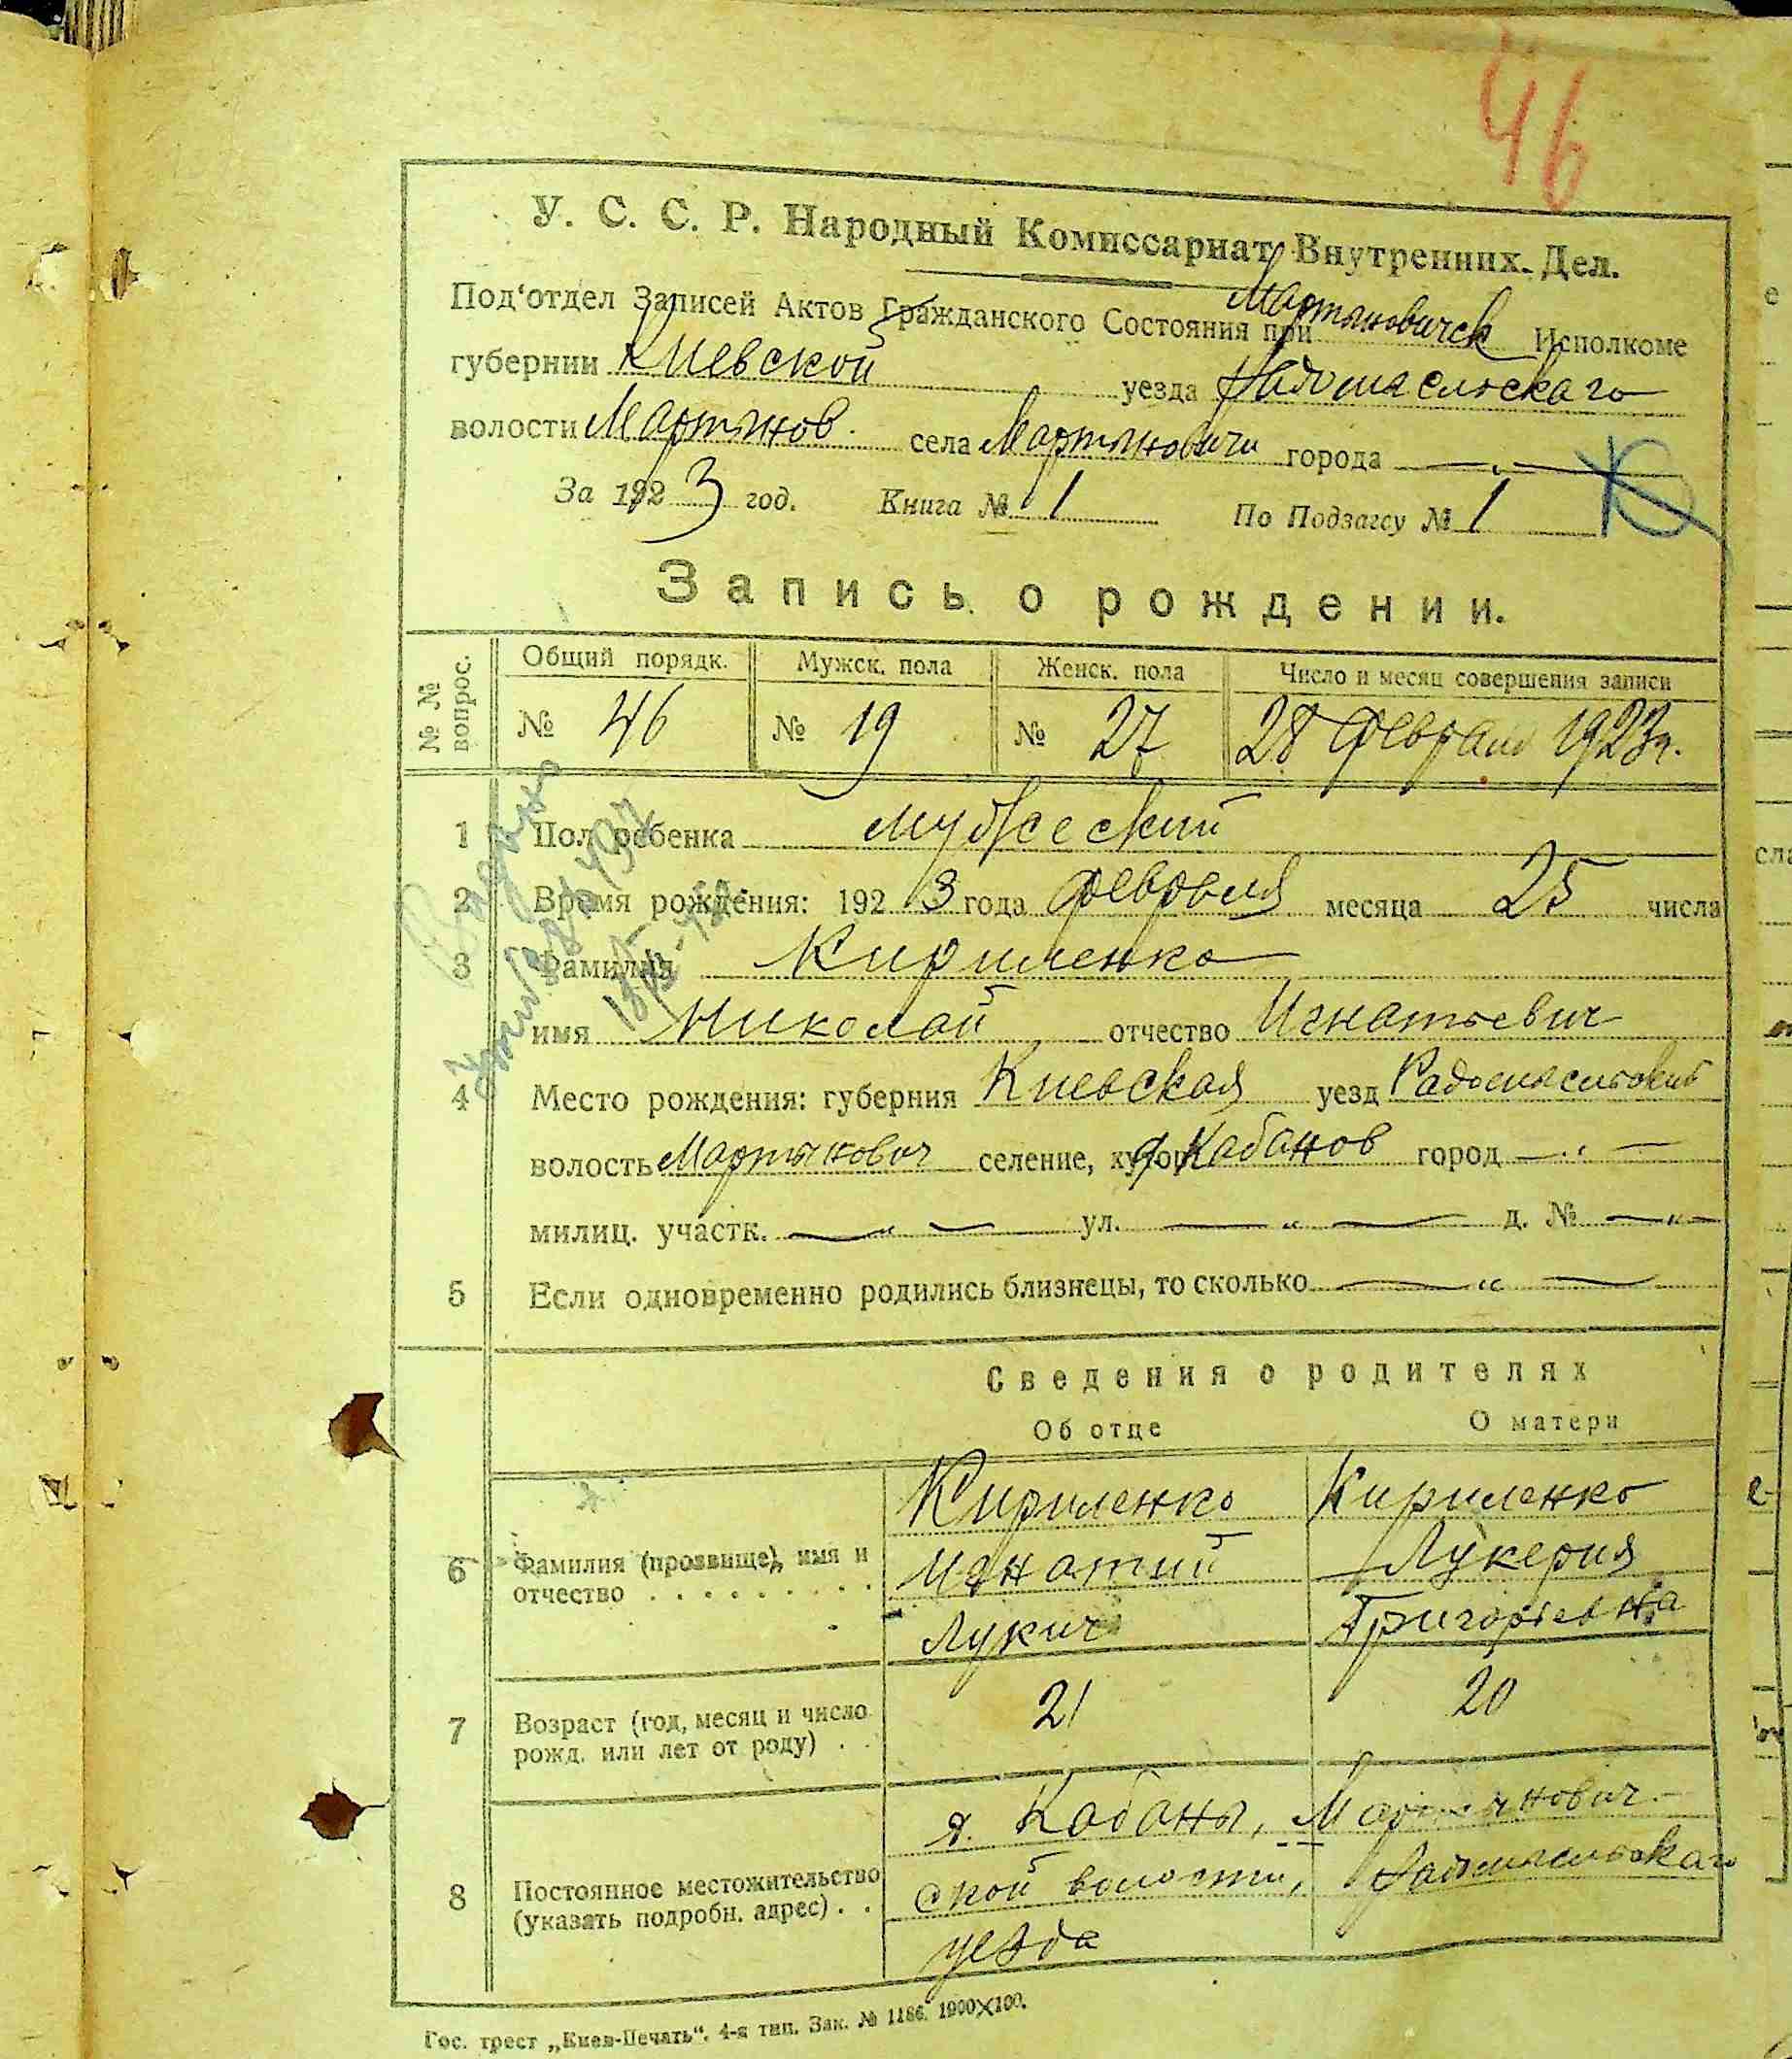 46
У. С. С. Р. Народный Комиссариат Внутренних Дел.
Под'отдел Записей Актов Гражданского Состояния при Мартыновичск Исполкоме
губернии Киевской уезда Радомысльскаго
волости Мартынов. села Мартыновичи города — „ —
За 1923 год. Книга № 1 По Подзагсу № 1
Запись о рождении.
№ № вопрос.
Общий порядк. Мужск. пола Женск. пола Число и месяц совершения записи
№ 46 № 19 № 27 28 февраля 1923 г.
1 Пол ребенка мужеский
2 Время рождения: 1923 года февраля месяца 25 числа
3 Фамилия Кириленко
имя Николай отчество Игнатьевич
4 Место рождения: губерния Киевская уезд Радомысльский
волость Мартынович селение, хутор д. Кабанов город — „ —
милиц. участк. — „ — ул. — „ — д. № — „ —
5 Если одновременно родились близнецы, то сколько — „ —
Сведения о родителях
Об отце О матери
Кириленко Кириленко
6 Фамилия (прозвище), имя и Игнатий Лукерия
отчество . . . . . . . . Лукич Григорьевна
7 Возраст (год, месяц и число 21 20
рожд. или лет от роду) . .
д. Кабаны, Мартынович-
8 Постоянное местожительство ской волости, Радомысльскаго
(указать подробн. адрес) . . уезда
Гос. трест „Киев-Печать". 4-я тип. Зак. № 1186. 1000×100.